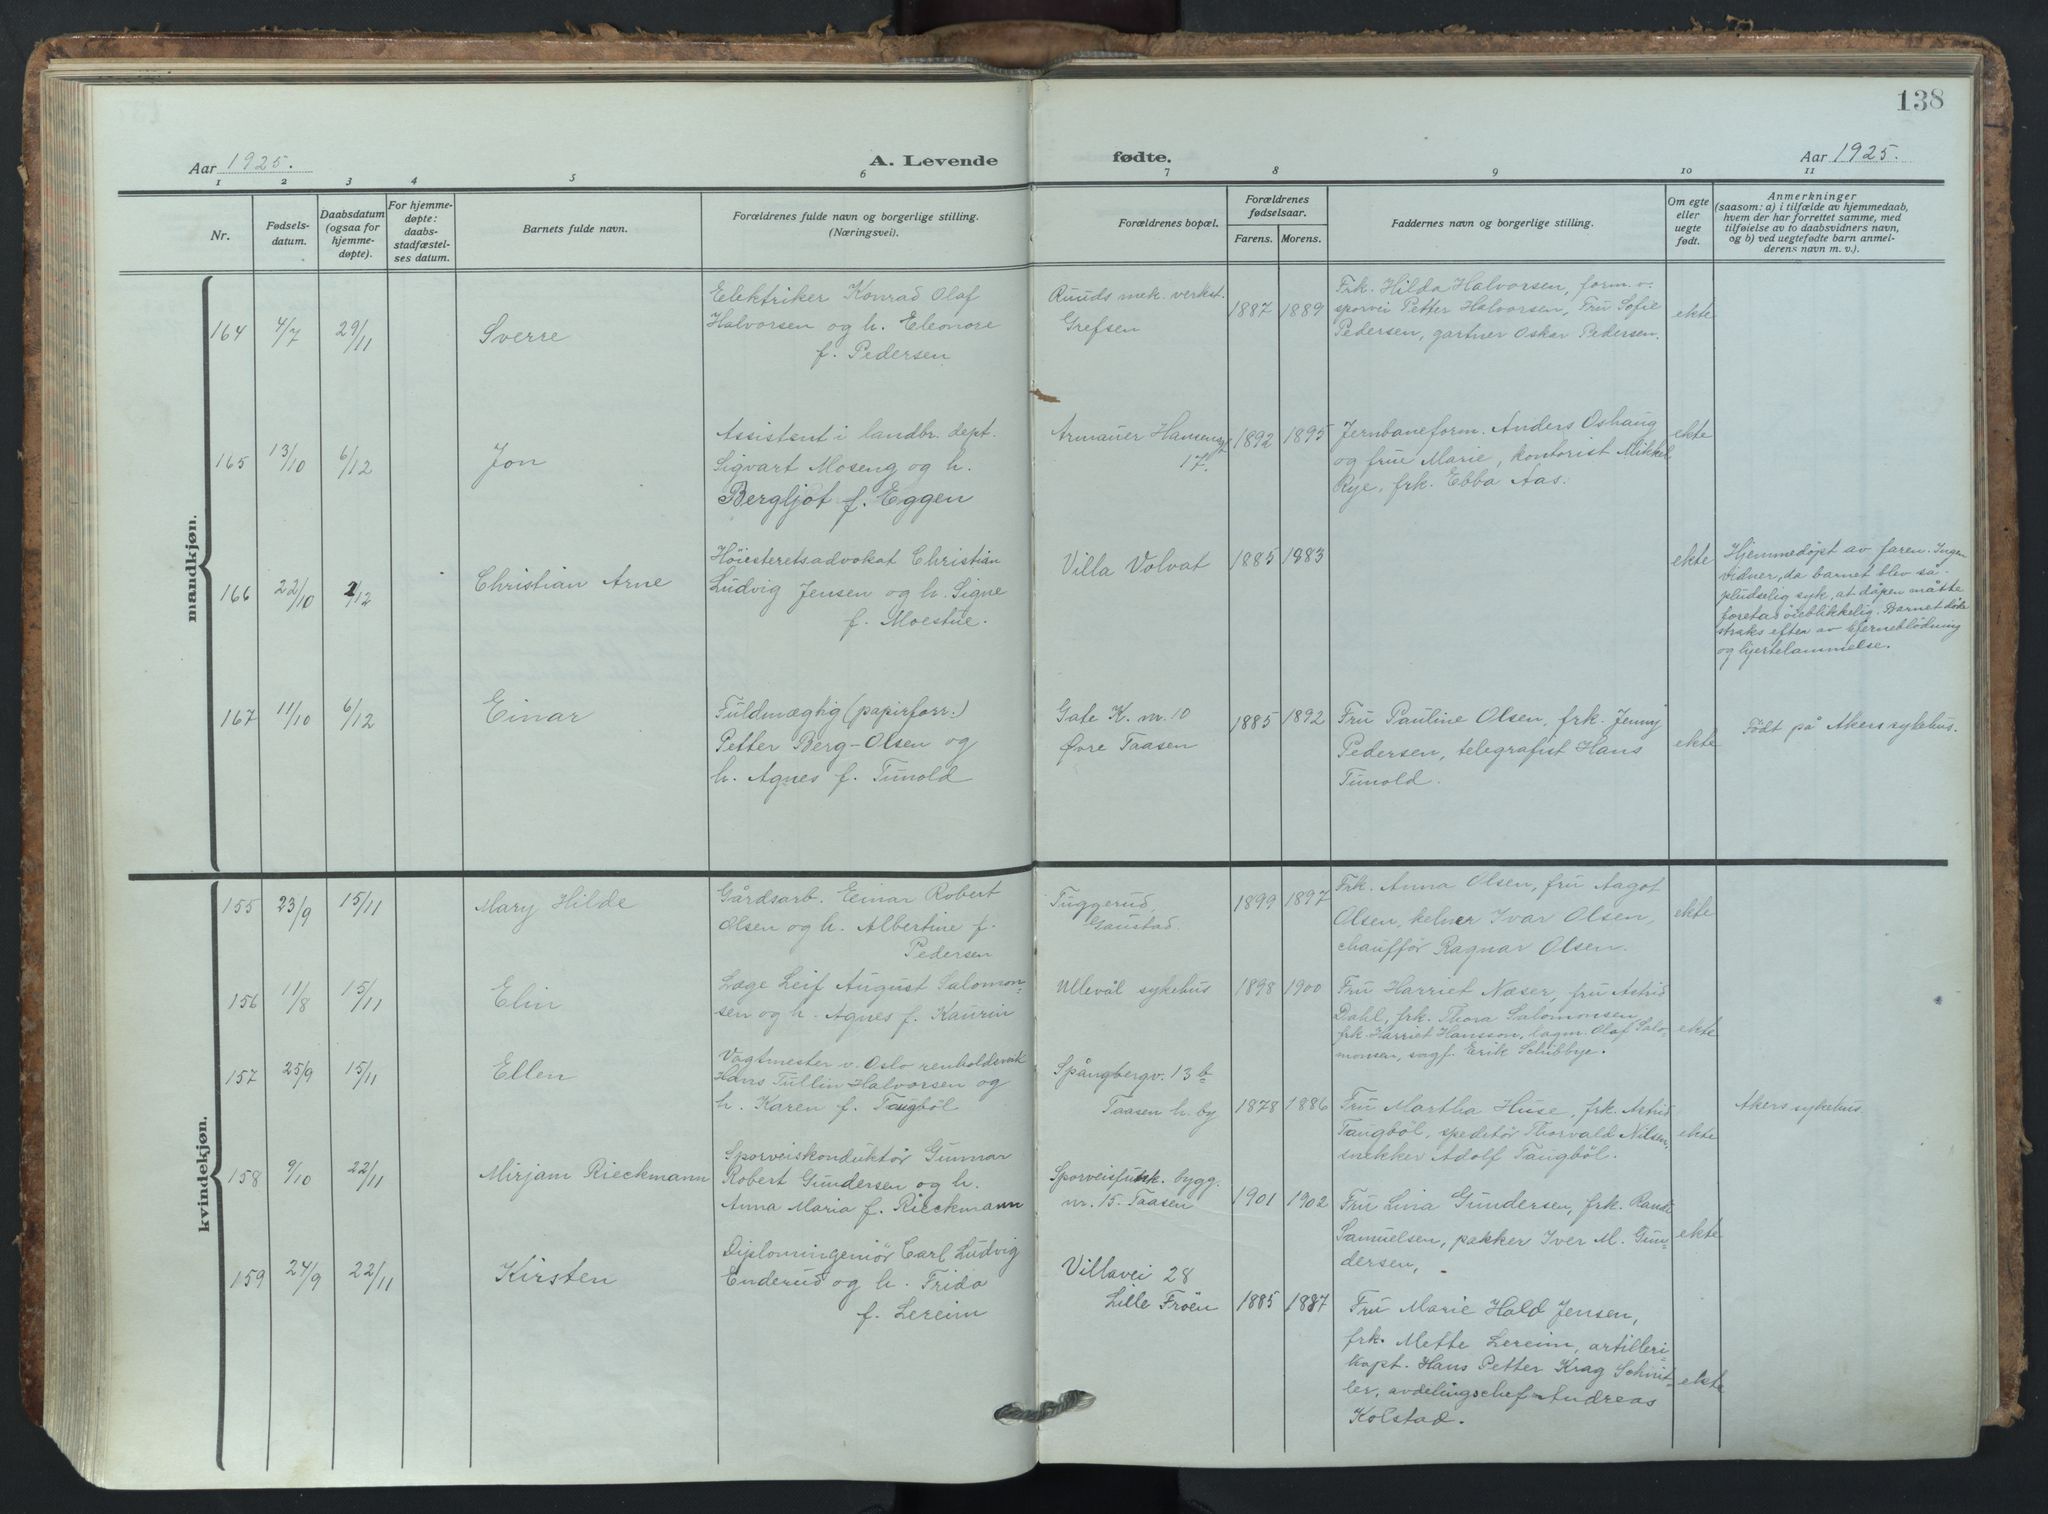 138
Aar 1925.
A. Levende fødte.
Aar 1925.
1 2 3 4 5 6 7 8 9 10 11
Nr.
Fødsels-
datum.
Daabsdatum
(ogsaa for
hjemme-
døpte).
For hjemme-
døpte:
daabs-
stadfæstel-
ses datum.
Barnets fulde navn.
Forældrenes fulde navn og borgerlige stilling.
(Næringsvei).
Forældrenes bopæl.
Forældrenes
fødselsaar.
Farens. Morens.
Faddernes navn og borgerlige stilling.
Om egte
eller
uegte
født.
Anmerkninger
(saasom: a) i tilfælde av hjemmedaab,
hvem der har forrettet samme, med
tilføielse av to daabsvidners navn,
og b) ved uegtefødte barn anmel-
derens navn m. v.).
mandkjøn.
164 4/7 29/11 Sverre
Elektriker Konrad Olaf
Halvorsen og h. Eleonore
f. Pedersen
Ruuds mek. verkst.
Grefsen
1887 1889
Frk. Hilda Halvorsen, form. v.
sporvei Petter Halvorsen, Fru Sofie
Pedersen, gartner Oskar Pedersen.
ekte
165 13/10 6/12 Jon
Assistent i landbr. dept.
Sigvart Moseng og h.
Bergljot f. Eggen
Armauer Hansensgt
17.
1892 1895
Jernbaneform. Anders Oshaug
og frue Marie, kontorist Mikkel
Rye, frk. Ebba Aas.
ekte
166 22/10 /12 Christian Arne
Høiesteretsadvokat Christian
Ludvig Jensen og h. Signe
f. Moestue.
Villa Volvat
1885 1883
ekte
Hjemmedøpt av faren. Ingen
vidner, da barnet blev så
pludselig syk, at dåpen måtte
foretas øieblikkelig. Barnet døde
straks efter av hjerneblødning
og hjertelammelse.
167 11/10 6/12 Einar
Fuldmægtig (papirforr.)
Petter Berg-Olsen og
h. Agnes f. Tunold
Gate K. nr. 10
Øvre Taasen
1885 1892
Fru Pauline Olsen, frk. Jenny
Pedersen, telegrafist Hans
Tunold.
ekte
Født på Akers sykehus.
kvindekjøn.
155 23/9 15/11 Mary Hilde
Gårdsarb. Einar Robert
Olsen og h. Albertine f.
Pedersen
Tuggerud,
Gaustad.
1899 1897
Frk. Anna Olsen, fru Aagot
Olsen, kelner Ivar Olsen,
chauffør Ragnar Olsen.
ekte
156 11/8 15/11 Elin
Læge Leif August Salomon-
sen og h. Agnes f. Kaurin
Ullevål sykehus
1898 1900
Fru Harriet Næser, fru Astrid
Dahl, frk. Thora Salomonsen,
frk. Harriet Hansson, lagm. Olaf Salo-
monsen, sagf. Erik Schibbye.
ekte
157 25/9 15/11 Ellen
Vagtmester v. Oslo renholdsverk
Hans Tullin Halvorsen og
h. Karen f. Taugbøl
Spångbergv. 13 b
Taasen h. by
1878 1886
Fru Martha Huse, frk. Astrid
Taugbøl, speditør Thorvald Nilsen,
snekker Adolf Taugbøl.
ekte
Akers sykehus.
158 9/10 22/11 Mirjam Rieckmann
Sporveiskonduktør Gunnar
Robert Gundersen og h.
Anna Maria f. Rieckmann
Sporveisfunk. bygg.
nr. 15. Taasen
1901 1902
Fru Lina Gundersen, frk. Randi
Samuelsen, pakker Iver M. Gun-
dersen.
ekte
159 24/9 22/11 Kirsten
Diplomingeniør Carl Ludvig
Enderud og h. Frida
f. Lereim
Villavei 28
Lille Frøen
1885 1887
Fru Marie Hald Jensen,
frk. Mette Lereim, artilleri-
kapt. Hans Petter Krag Schnit-
ler, avdelingschef Andreas
Kolstad.
ekte